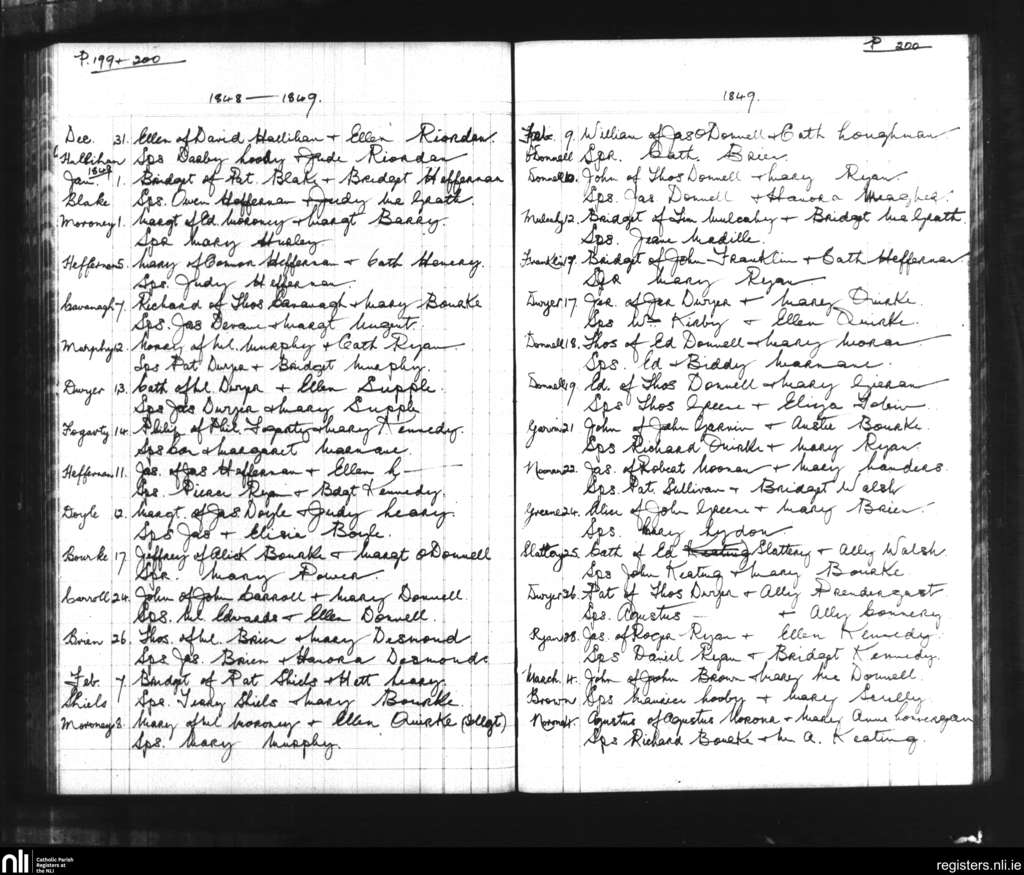 P. 199 + 200
1848 — 1849.
Dec. 31. Ellen of David Hallihan + Ellen Riordan.
Hallihan Sps Darby Looby + Jude Riordan
1849
Jan. 1. Bridget of Pat. Blake + Bridget Heffernan
Blake Sps. Owen Heffernan + Judy McGrath.
Moroney 1. Margt. of Ed. Moroney + Margt Barry.
Spr Mary Hurley
Heffernan 5. Mary of Connor Heffernan + Cath Henery.
Sps. Judy Heffernan.
Cavanagh 7. Richard of Thos Cavanagh + Mary Bourke
Sps. Jas Devane + Margt Nugent.
Murphy 12. Honey of Ml. Murphy + Cath Ryan
Sps Pat Dwyer + Bridget Murphy.
Dwyer 13. Cath of Ml. Dwyer + Ellen Supple.
Sps Jas Dwyer + Mary Supple
Fogarty 14. Philip of Phil. Fogarty + Mary Kennedy.
Sps Con + Margaret Marnane.
Heffernan 11. Jas. of Jas Heffernan + Ellen h —
Sps. Pierce Ryan + Bdgt Kennedy.
Doyle 12. Margt. of Jas Doyle + Judy Leary.
Sps Jas + Elisia Boyle.
Bourke 17 Jeffrey of Alick Bourke + Margt O Donnell
Spr. Mary Power.
Carroll 24. John of John Carroll + Mary Donnell.
Sps. Ml Edwards + Ellen Donnell.
Brien 26. Thos. of Ml. Brien + Mary Desmond
Sps. Jas. Brien + Hanora Desmond
Feb. 7 Bridget of Pat Shiels + Hett Leary.
Shiels Spr. Teady Shiels + Mary Bourke
Moroney 8. Mary of Ml Moroney + Ellen Quirke (Illegt)
Sps. Mary Murphy.
P 200
1849.
Feb. 9. William of Jas O Donnell + Cath Loughman
O'Donnell Spr. Cath. Brien
Donnell 10. John of Thos Donnell + Mary Ryan
Sps. Jas Donnell + Hanora Meagher.
Mulcahy 12. Bridget of Tim Mulcahy + Bridget McGrath
Sps. Jeane Madille.
Franklin 19. Bridget of John Franklin + Cath Heffernan
Spr Mary Ryan
Dwyer 17 Jer. of Jer Dwyer + Mary Quirke.
Sps Wm Kirby + Ellen Quirke.
Donnell 18. Thos of Ed Donnell + Mary Moran
Sps. Ed + Biddy Marnane.
Donnell 19 Ed. of Thos Donnell + Mary
Sps Thos Greene + Eliza Tobin
Garvin 21 John of John Garvin + Anstie Bourke.
Sps Richard Quirke + Mary Ryan
Noonan 22. Jas. of Robert Noonan + Mary Landers.
Sps. Pat. Sullivan + Bridget Walsh
Greene 24. Alice of John Greene + Mary Brien
Sps. Mary Lydon
Slattery 25. Cath of Ed Keating Slattery + Ally Walsh
Sps John Keating + Mary Bourke
Dwyer 26. Pat of Thos Dwyer + Ally Prendergast
Sps. Agustus — + Ally Connery
Ryan 28. Jas. of Roger Ryan + Ellen Kennedy.
Sps Daniel Ryan + Bridget Kennedy.
March 4. John of John Brown + Mary Mc Donnell.
Brown Sps Maurice Looby + Mary Scully
Agustus of Agustus Morona + Mary Anne Lonergan
Sps Richard Bourke + M A. Keating.
nli
Catholic Parish
Registers at
the NLI
registers.nli.ie